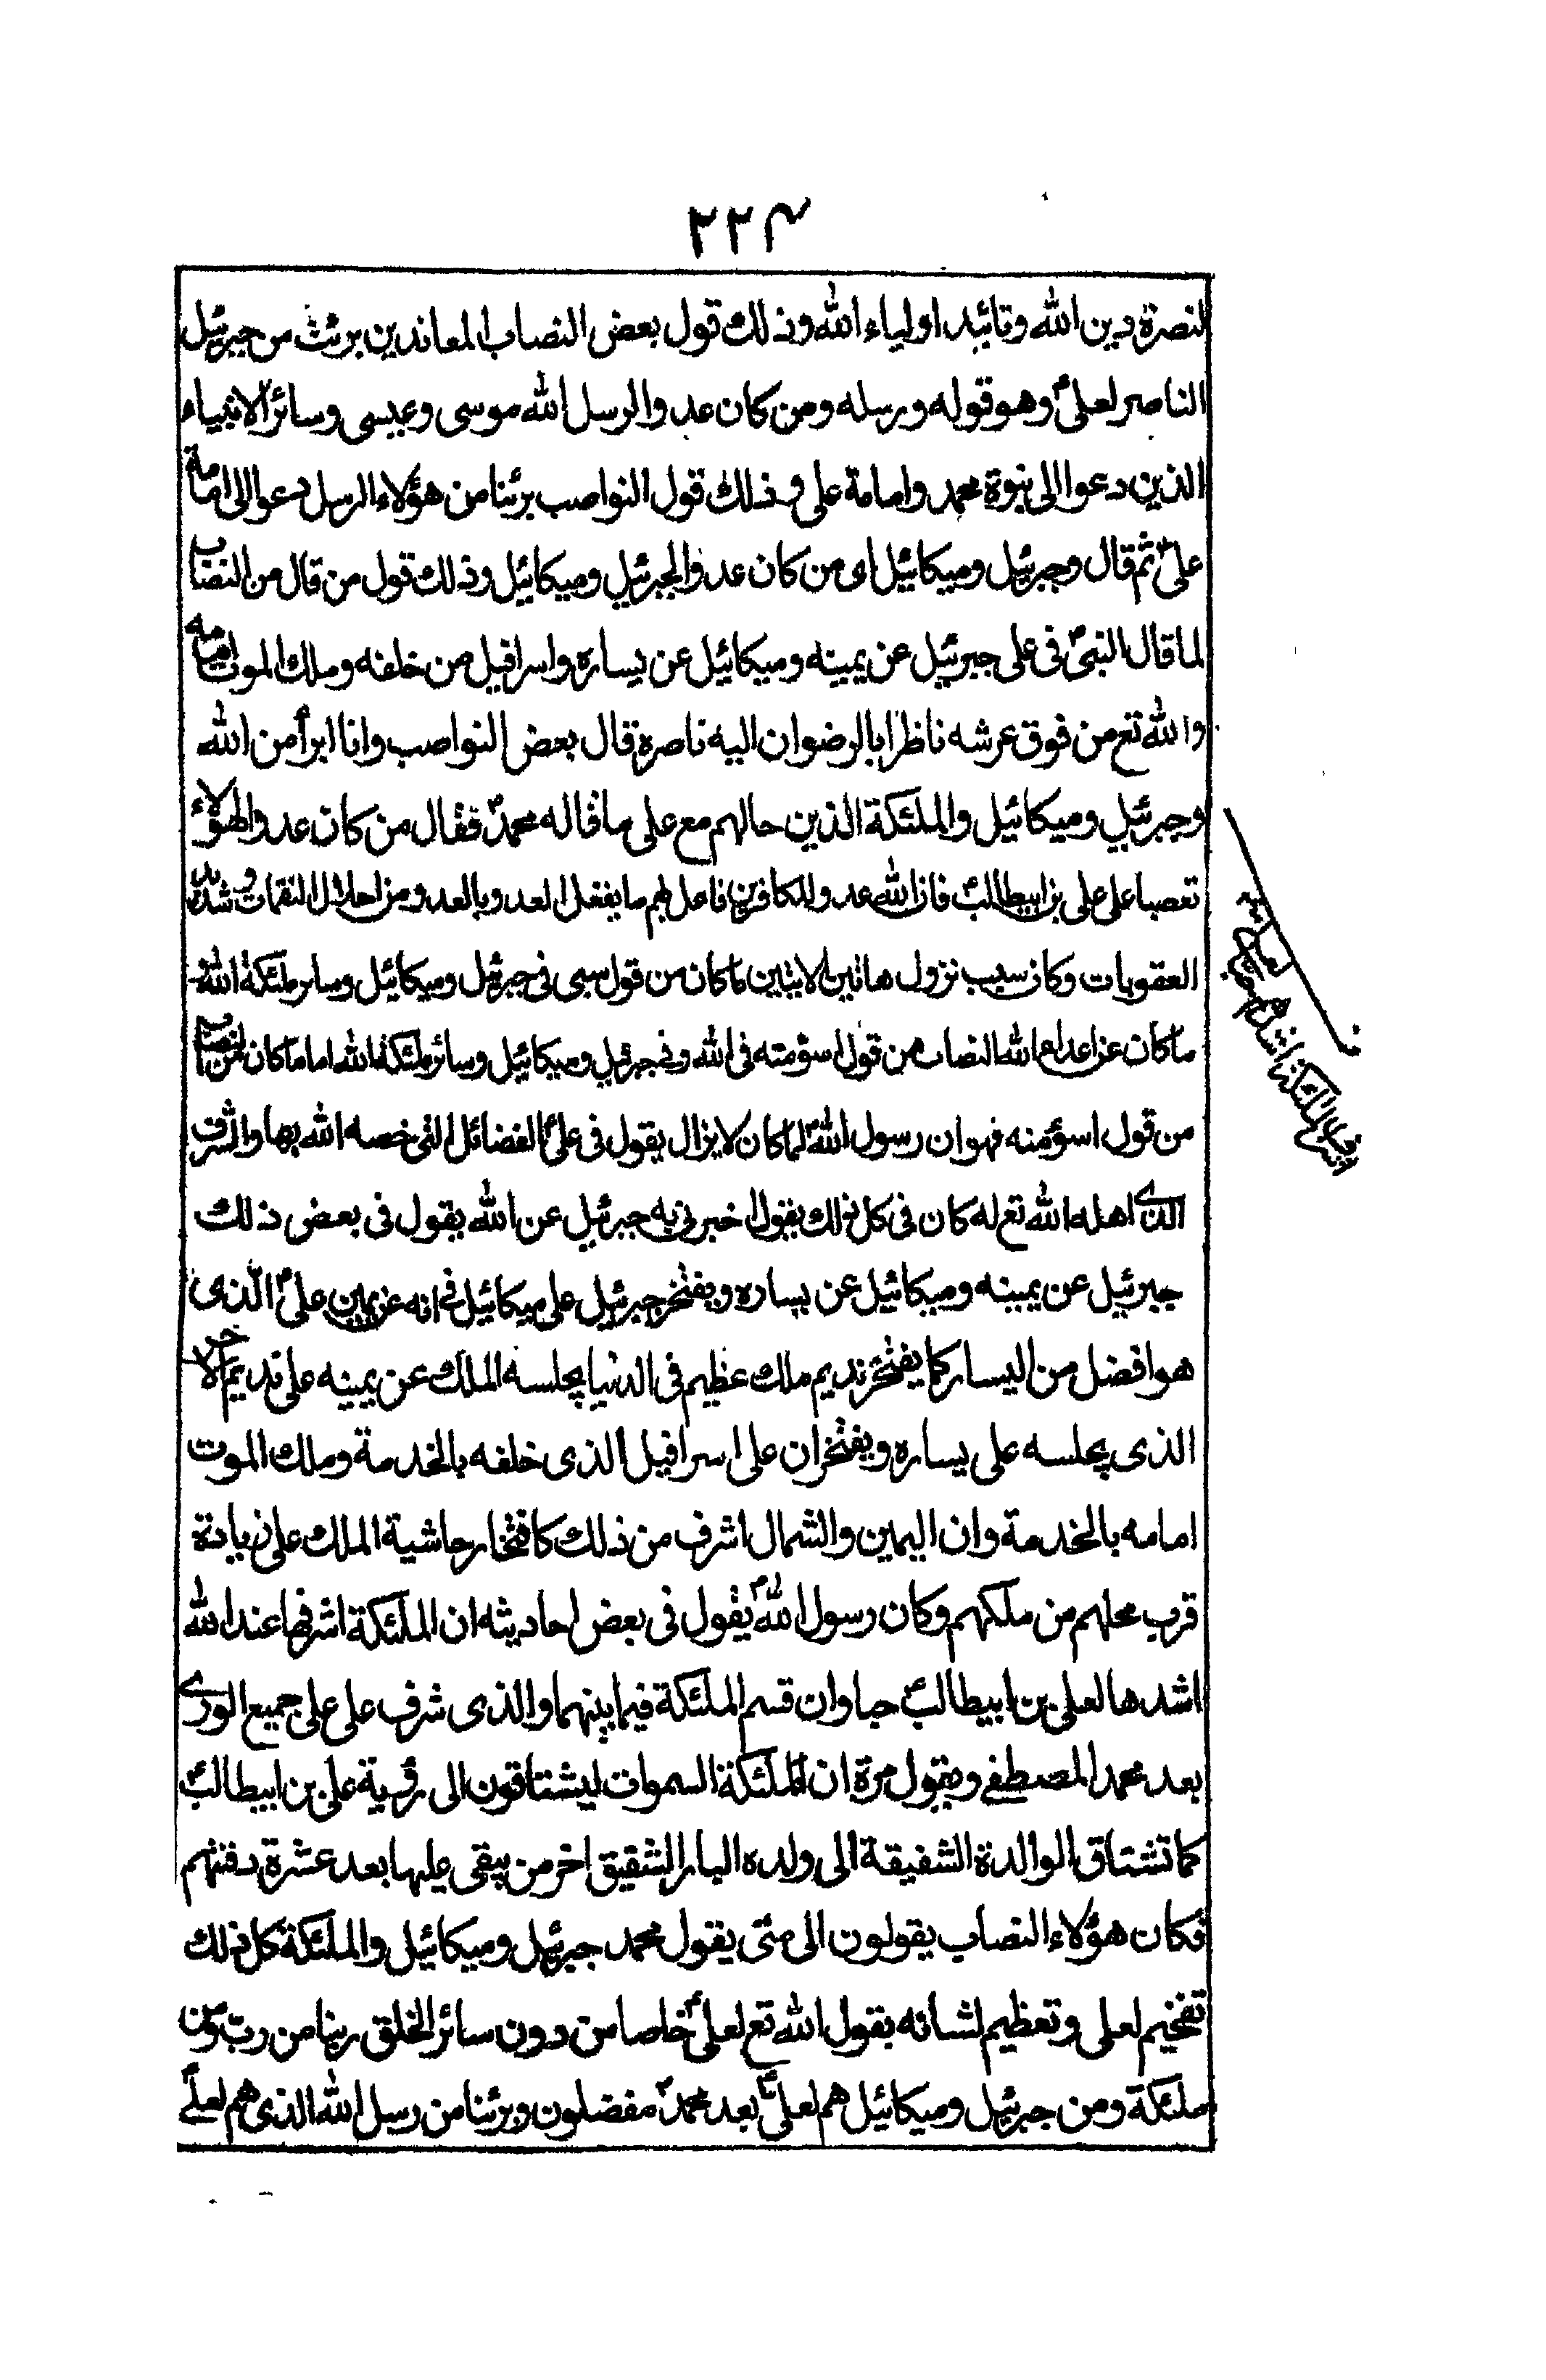 ٢٢٣
لنصرة دين الله وتائيد اولياء الله وذلك قول بعض النصاب المعاندين برئت من جبرئيل
الناصر لعلیؑ وهو قوله ورسله ومن كان عدوا لرسل الله موسى وعيسى وسائر الانبياء
الذين دعوا الى نبوة محمد وامامة على وذلك قول النواصب برئنا من هؤلاء الرسل دعوا الى امامة
علىؑ ثم قال وجبرئيل وميكائيل اى من كان عدوا لجبرئيل وميكائيل وذلك قول من قال من النصاب
لما قال النبىؐ فى على جبرئيل عن يمينه وميكائيل عن يساره واسرافيل من خلفه وملك الموت امامه
والله تع من فوق عرشه ناظرا بالرضوان اليه ناصره قال بعض النواصب وانا ابرأ من الله
وجبرئيل وميكائيل والملئكة الذين حالهم مع على ما قاله محمدؐ فقال من كان عدوا لهؤلاء
تعصبا على على بن ابيطالبؑ فان الله عدو للكافرين فاعل بهم ما يفعل العدو بالعدو من احلال النقمات وشديد
العقوبات وكان سبب نزول هاتين الايتين ما كان من قول سيى فى جبرئيل وميكائيل وسائر ملئكة الله
ما كان عن اعداء الله النصاب من قول اسؤ منه فى الله وفى جبرئيل وميكائيل وسائر ملئكة الله اما ما كان من النصاب
من قول اسؤ منه فهو ان رسول اللهؐ لما كان لا يزال يقول فى علىؑ الفضائل التى خصه الله بها والشرف
الذى اهله الله تع له كان فى كل ذلك يقول اخبرنى به جبرئيل عن الله يقول فى بعض ذلك
جبرئيل عن يمينه وميكائيل عن يساره ويفتخر جبرئيل على ميكائيل فى انه عن يمين علىؑ الذى
هو افضل من اليسار كما يفتخر نديم ملك عظيم فى الدنيا يجلسه الملك عن يمينه على نديم الاخر
الذى يجلسه على يساره ويفتخران على اسرافيل الذى خلفه بالخدمة وملك الموت
امامه بالخدمة وان اليمين والشمال اشرف من ذلك كافتخار حاشية الملك على زيادة
قرب محلهم من ملكهم وكان رسول اللهؐ يقول فى بعض احاديثه ان الملئكة اشرفها عند الله
اشدها لعلى بن ابيطالبؑ حبا وان قسم الملئكة فيما بينهما والذى شرف على على جميع الورى
بعد محمد المصطفى ويقول مرة ان الملئكة السموات ليشتاقون الى رؤية على بن ابيطالبؑ
كما تشتاق الوالدة الشفيقة الى ولده البار الشقيق اخر من يبقى عليها بعد عشرة دفنتهم
فكان هؤلاء النصاب يقولون الى متى يقول محمد جبرئيل وميكائيل والملئكة كل ذلك
تفخيم لعلى وتعظيم لشانه يقول الله تع لعلىؑ خاصا من دون سائر الخلق رينا من رب ومن
ملئكة ومن جبرئيل وميكائيل هم لعلىؑ بعد محمدؐ مفضلون وبرئنا من رسل الله الذى هم لعلىؑ